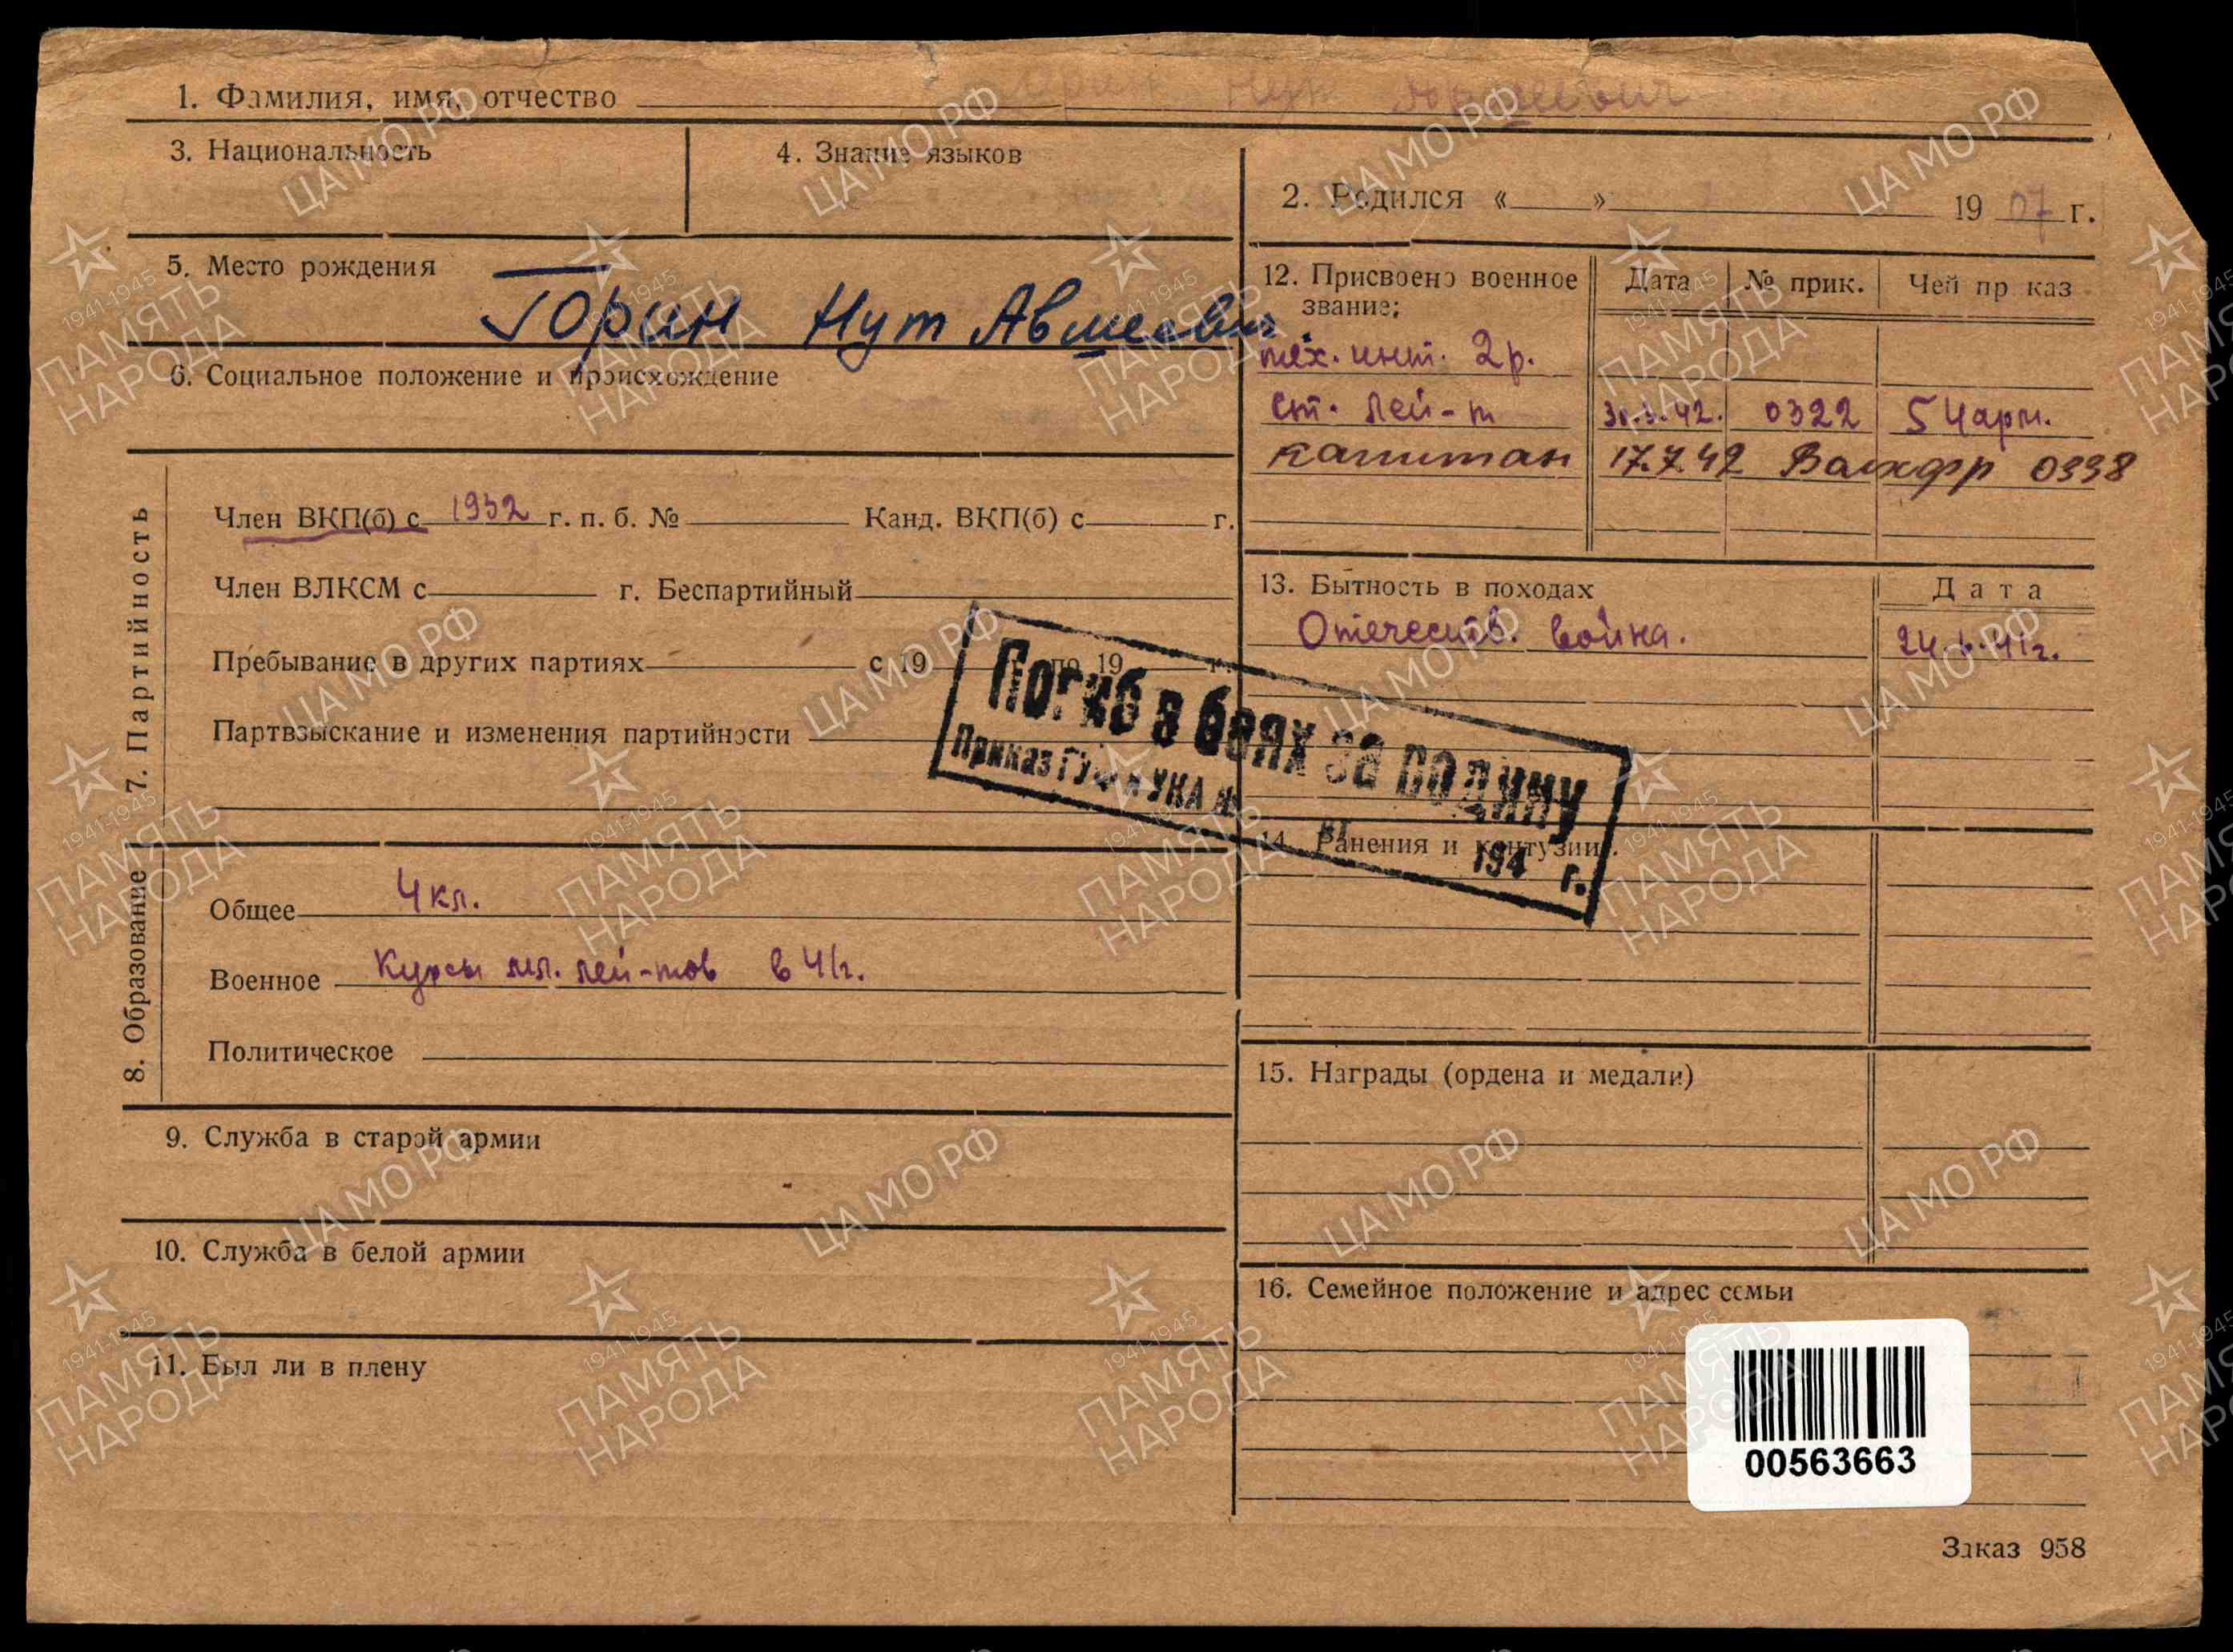 1. Фамилия, имя, отчество
3. Национальность
4. Знание языков
2. Родился « » 1907 г.
5. Место рождения
Горин Нут Авшеевич
6. Социальное положение и происхождение
12. Присвоено военное звание:
Дата № прик. Чей приказ
тех. инт. 2р.
ст. лей-т 42. 0322 54 арм.
капитан 17.7.42 0338
7. Партийность
Член ВКП(б) с 1932 г. п. б. № Канд. ВКП(б) с г.
Член ВЛКСМ с г. Беспартийный
Пребывание в других партиях с 19 по 19 г.
Партвзыскание и изменения партийности
13. Бытность в походах
Дата
Отечеств. война. 24.6.41г.
Погиб в боях за родину
Приказ ГУФ и УКА №
194 г.
14. Ранения и контузии
8. Образование
Общее 4 кл.
Военное Курсы мл. лей-тов в 41г.
Политическое
15. Награды (ордена и медали)
9. Служба в старой армии
10. Служба в белой армии
11. Был ли в плену
16. Семейное положение и адрес семьи
00563663
Заказ 958
ЦА МО РФ
1941-1945
ПАМЯТЬ
НАРОДА